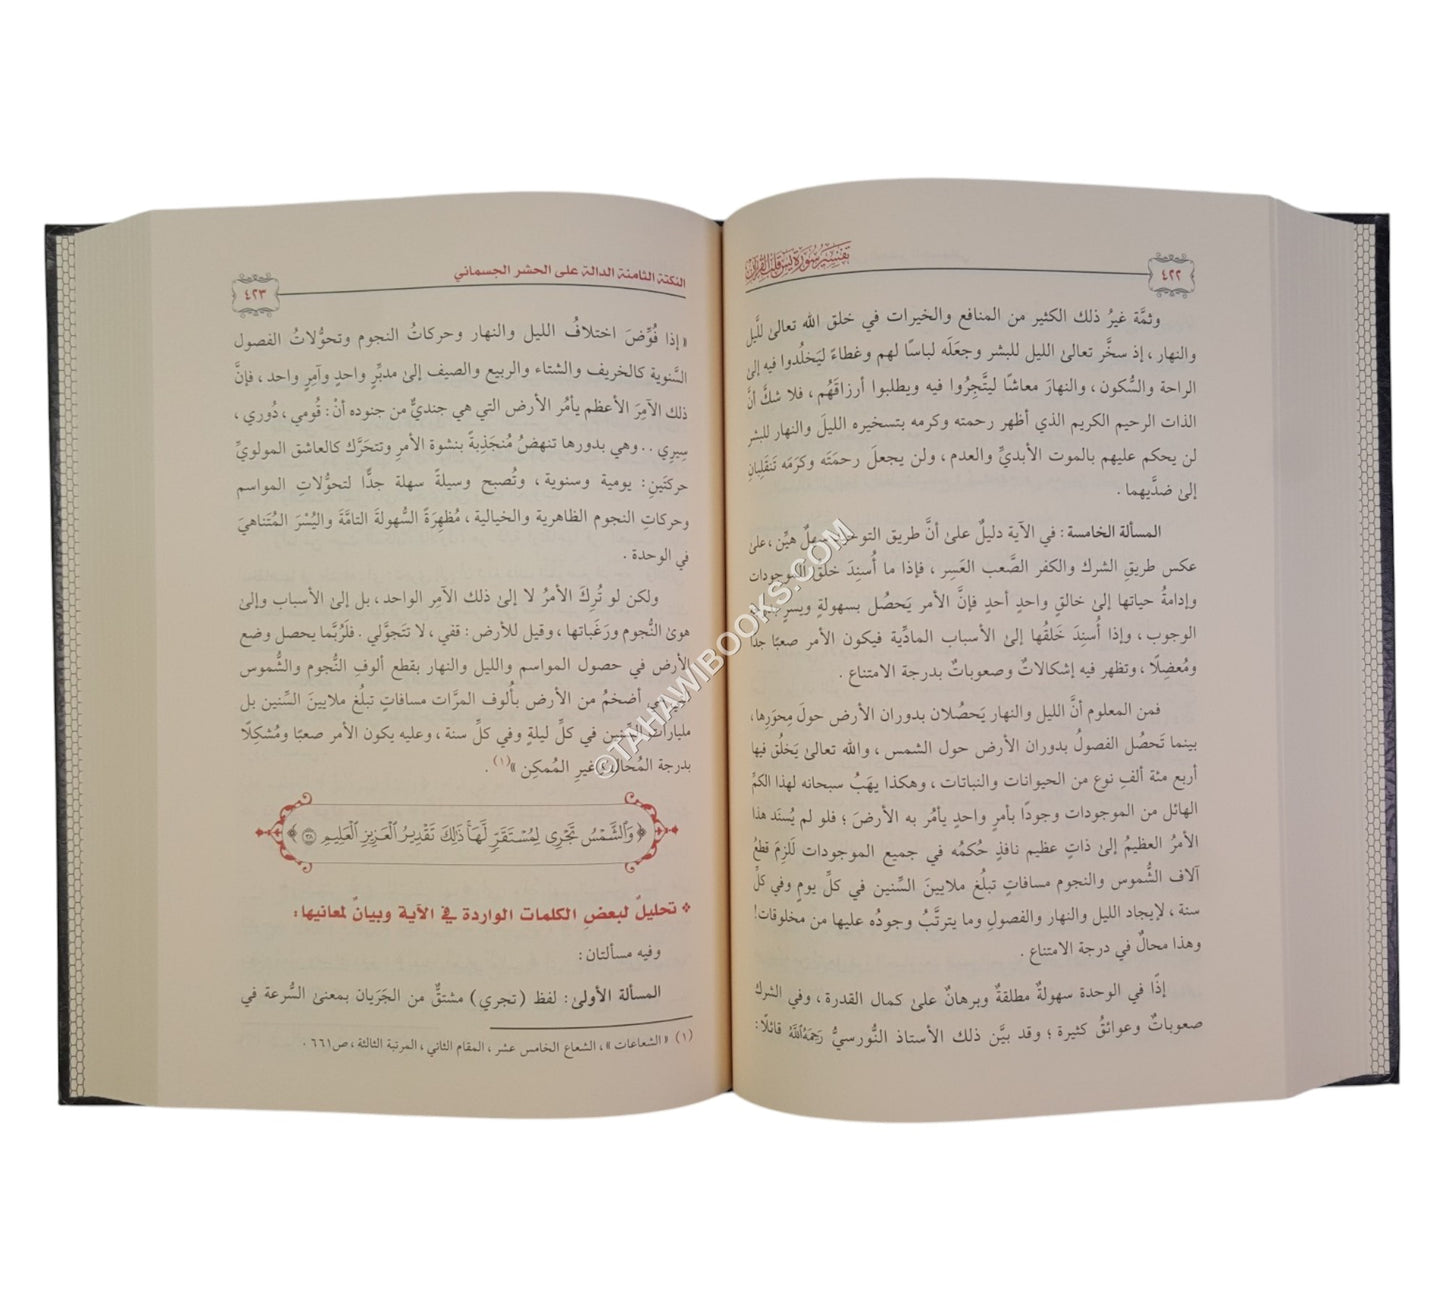 ٤٢٢
تفسير سورة يس قلب القرآن
وثمَّة غيرُ ذلك الكثير من المنافع والخيرات في خلق الله تعالىٰ للَّيل
والنهار ، إذ سخَّر تعالىٰ الليل للبشر وجعَلَه لباسًا لهم وغطاءً ليَخلُدوا فيه إلىٰ
الراحة والسُّكون ، والنهارَ معاشًا ليتَّجِرُوا فيه ويطلبوا أرزاقَهُم ، فلا شكَّ أنَّ
الذات الرحيم الكريم الذي أظهر رحمته وكرمه بتسخيره الليلَ والنهار للبشر
لن يحكم عليهم بالموت الأبديِّ والعدم ، ولن يجعلَ رحمَتَه وكرَمَه تَنقَلِبانِ
إلىٰ ضدَّيهما .
المسألة الخامسة : في الآية دليلٌ علىٰ أنَّ طريق التوحيد سهلٌ هيِّن ، علىٰ
عكس طريقِ الشرك والكفر الصَّعب العَسِر ، فإذا ما أُسنِدَ خلقُ الموجودات
وإدامةُ حياتها إلىٰ خالقٍ واحدٍ أحدٍ فإنَّ الأمر يَحصُل بسهولةٍ ويسرٍ
الوجوب ، وإذا أُسنِدَ خَلقُها إلىٰ الأسباب المادِّية فيكون الأمر صعبًا جدًا
ومُعضِلًا ، وتظهر فيه إشكالاتٌ وصعوباتٌ بدرجة الامتناع .
فمن المعلوم أنَّ الليل والنهار يَحصُلان بدوران الأرض حولَ مِحوَرِها ،
بينما تَحصُل الفصولُ بدوران الأرض حول الشمس ، والله تعالىٰ يَخلُق فيها
أربع مئة ألفِ نوع من الحيوانات والنباتات ، وهكذا يهَبُ سبحانه لهذا الكمِّ
الهائل من الموجودات وجودًا بأمرٍ واحدٍ يأمُر به الأرضَ ؛ فلو لم يُسنَد هذا
الأمرُ العظيمُ إلىٰ ذاتٍ عظيم نافذٍ حُكمُه في جميع الموجودات للَزِمَ قطعُ
آلاف الشُّموس والنجوم مسافاتٍ تبلُغ ملايينَ السِّنين في كلِّ يومٍ وفي كلِّ
سنة ، لإيجاد الليل والنهار والفصولِ وما يترتَّبُ وجودُه عليها من مخلوقات!
وهذا محالٌ في درجة الامتناع .
إذًا في الوحدة سهولةٌ مطلقةٌ وبرهانٌ علىٰ كمال القدرة ، وفي الشرك
صعوباتٌ وعوائقُ كثيرة ؛ وقد بيَّن ذلك الأستاذ النُّورسيُّ رَحِمَهُ ٱللَّهُ قائلًا :
النكتة الثامنة الدالة على الحشر الجسماني
٤٢٣
« إذا فُوِّضَ اختلافُ الليل والنهار وحركاتُ النجوم وتحوُّلاتُ الفصول
السَّنوية كالخريف والشتاء والربيع والصيف إلىٰ مدبِّرٍ واحدٍ وآمِرٍ واحد ، فإنَّ
ذلك الآمِرَ الأعظم يأمُر الأرض التي هي جنديٌّ من جنوده أنْ : قُومي ، دُوري ،
سِيرِي . . وهي بدورها تنهضُ مُنجَذِبةً بنشوة الأمرِ وتتحَرَّك كالعاشق المولويِّ
حركتَينِ : يومية وسنوية ، وتُصبح وسيلةً سهلة جدًّا لتحوُّلاتِ المواسم
وحركاتِ النجوم الظاهرية والخيالية ، مُظهِرَةً السُّهولةَ التامَّةَ واليُسْرَ المُتَناهيَ
في الوحدة .
ولكن لو تُرِكَ الأمرُ لا إلى ذلك الآمِر الواحد ، بل إلىٰ الأسباب وإلىٰ
هوىٰ النُّجوم ورَغَباتها ، وقيل للأرض : قفي ، لا تَتَجوَّلي . فلَرُبَّما يحصل وضع
الأرض في حصول المواسم والليل والنهار بقطع ألوفِ النُّجوم والشُّموس
أضخمُ من الأرض بأُلوف المرَّات مسافاتٍ تبلُغ ملايينَ السِّنين بل
مليارات السِّنين في كلِّ ليلةٍ وفي كلِّ سنة ، وعليه يكون الأمر صعبًا ومُشكِلًا
بدرجة المُحال وغيرِ المُمكِن »(١) .
﴿ وَٱلشَّمْسُ تَجْرِى لِمُسْتَقَرٍّ لَّهَا ذَٰلِكَ تَقْدِيرُ ٱلْعَزِيزِ ٱلْعَلِيمِ ٣٨ ﴾
تحليلٌ لبعضِ الكلمات الواردة في الآية وبيانٌ لمعانيها :
وفيه مسألتان :
المسألة الأولىٰ : لفظ (تجري) مشتقٌّ من الجَرَيان بمعنىٰ السُّرعة في
(١) « الشعاعات » ، الشعاع الخامس عشر ، المقام الثاني ، المرتبة الثالثة ، ص٦٦١ .
©TAHAWIBOOKS.COM